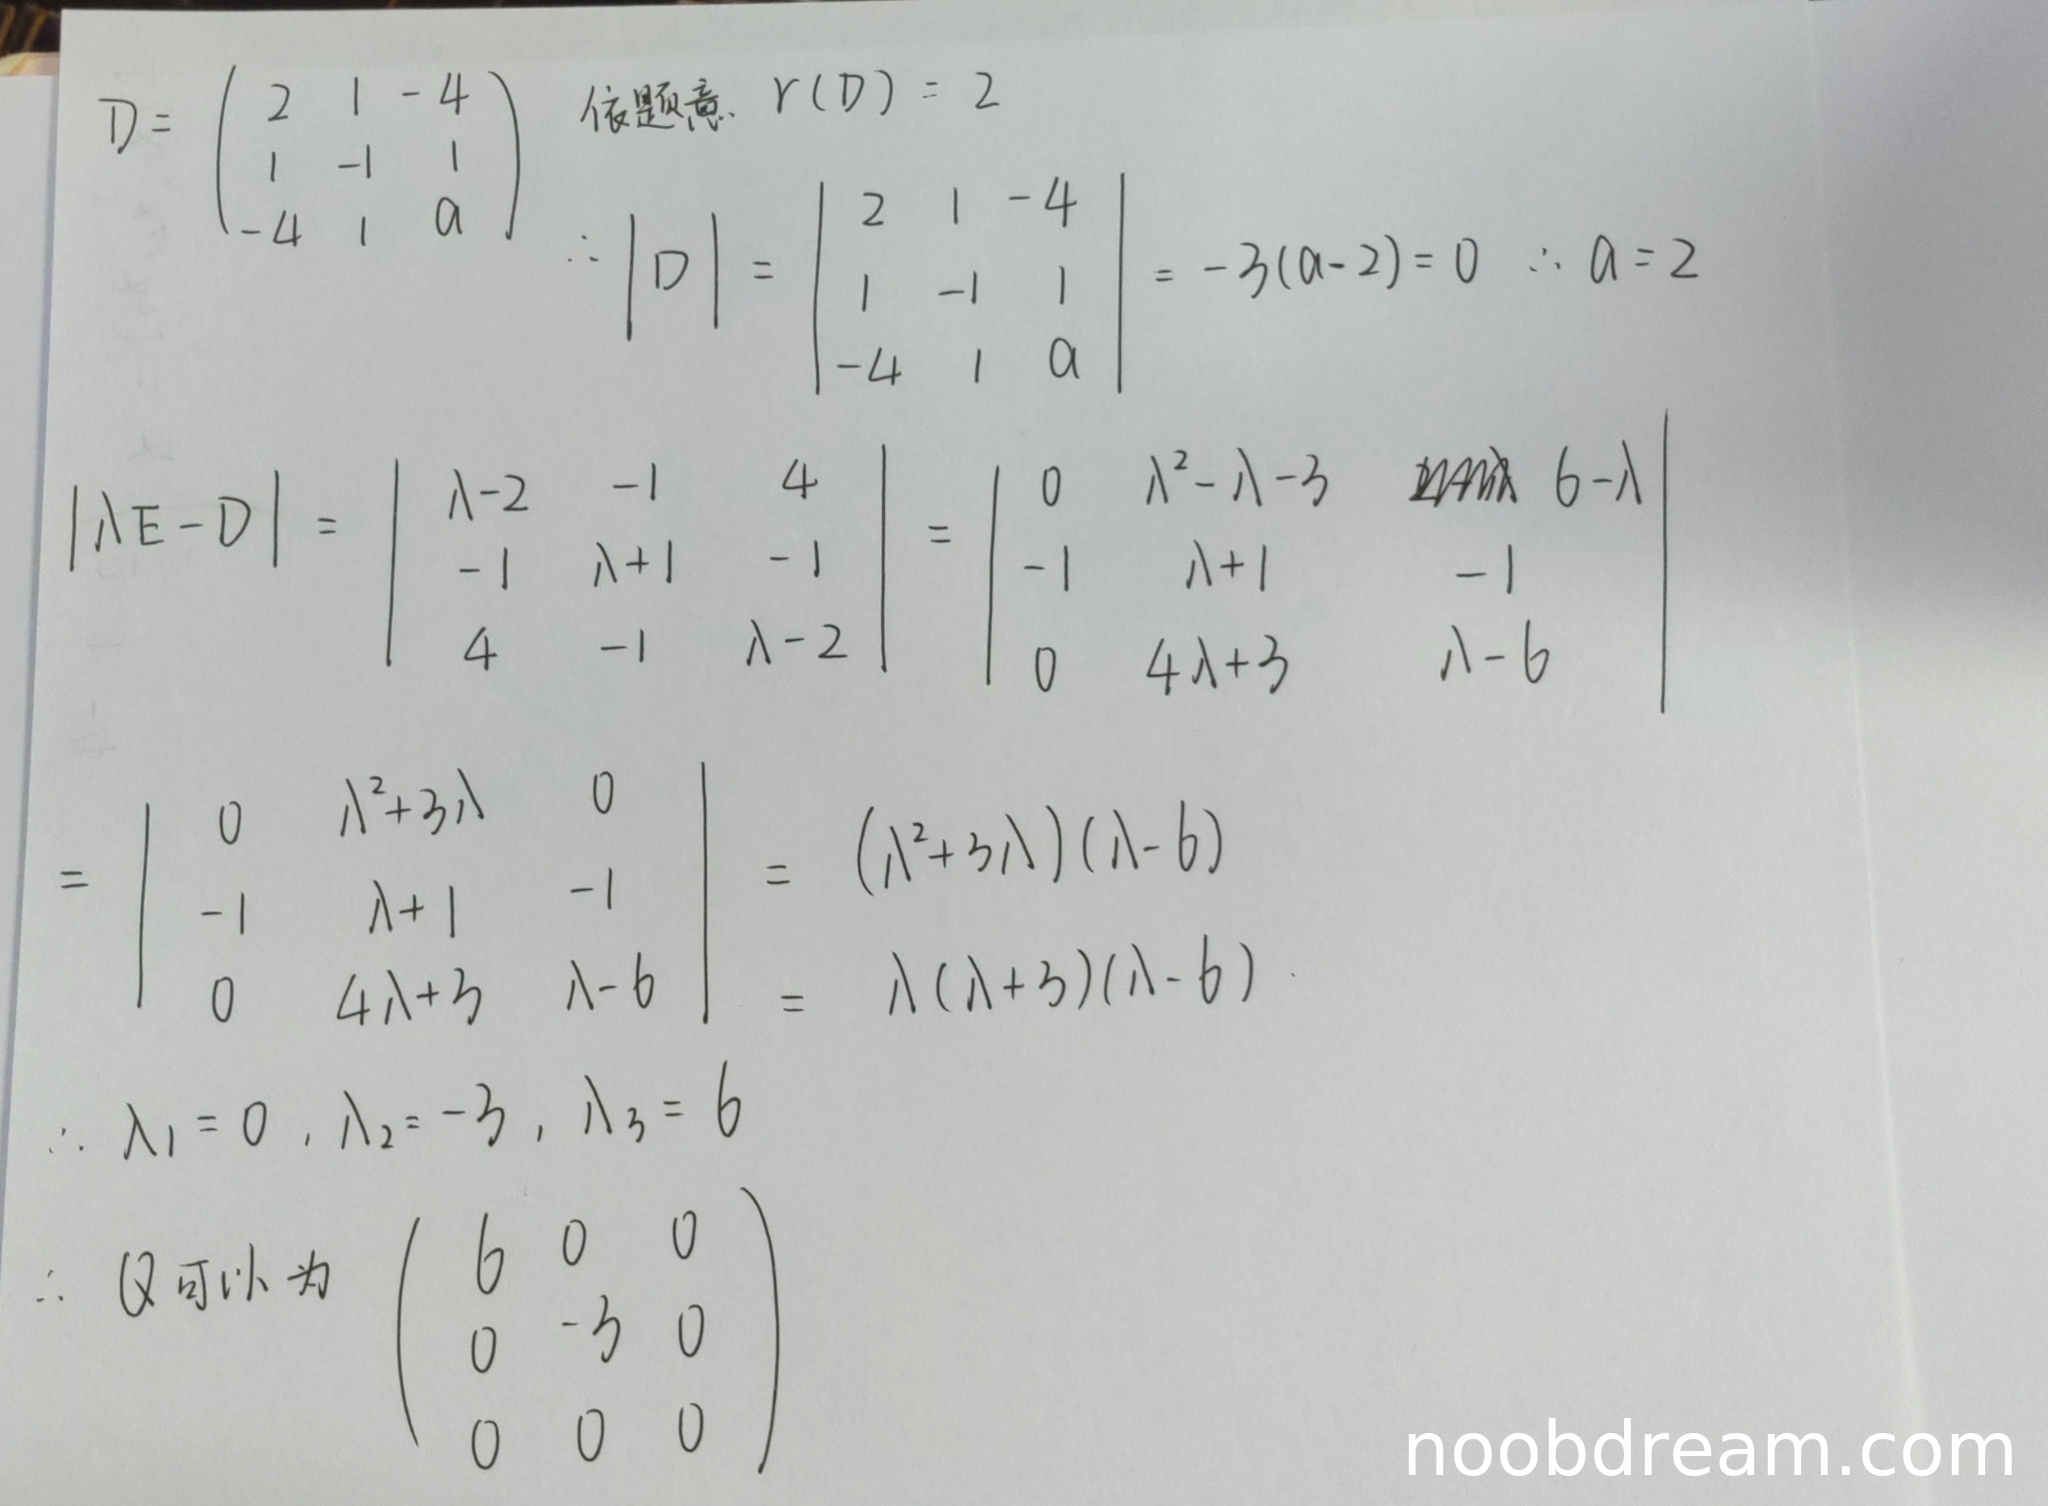 D = ( 2 1 -4 依题意. r(D) = 2
1 -1 1
-4 1 a )
∴ |D| = | 2 1 -4
1 -1 1
-4 1 a | = -3(a-2) = 0 ∴ a = 2
|λE-D| = | λ-2 -1 4
-1 λ+1 -1
4 -1 λ-2 |
= | 0 λ²-λ-3 6-λ
-1 λ+1 -1
0 4λ+3 λ-6 |
= | 0 λ²+3λ 0
-1 λ+1 -1
0 4λ+3 λ-6 |
= (λ²+3λ)(λ-6)
= λ(λ+3)(λ-6).
∴ λ₁ = 0, λ₂ = -3, λ₃ = 6
∴ Q可以为 ( 6 0 0
0 -3 0
0 0 0 )
noobdream.com